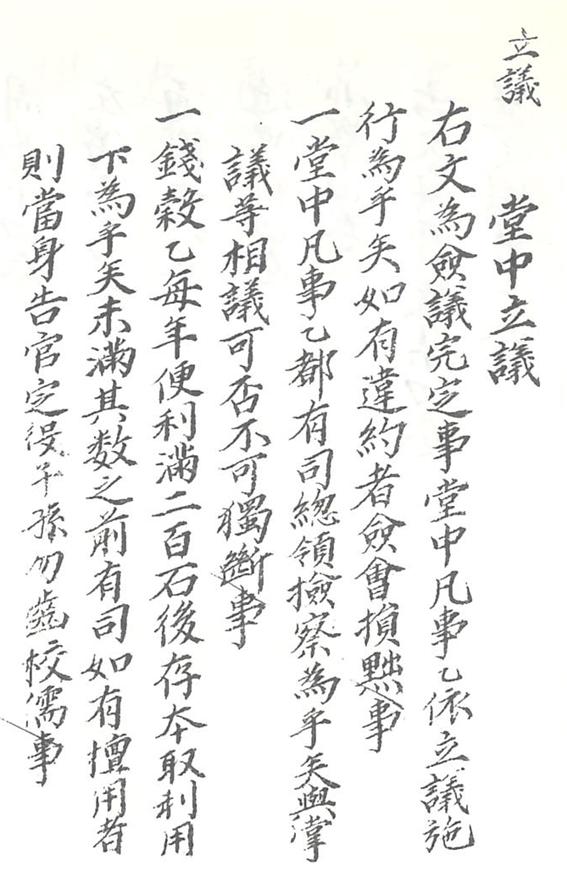 立議
堂中立議
右文為僉議完定事堂中凡事乙依立議施
行為乎矣如有違約者僉會損黜事
一堂中凡事乙都有司緫領撿察為乎矣與掌
議等相議可否不可獨斷事
一錢穀乙每年便利滿二百石後存本取利用
下為乎矣未滿其数之前有司如有擅用者
則當身告官定役子孫勿齒校儒事